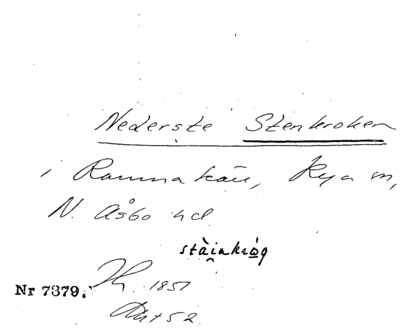 Nederste Stenkroken
i Ramnakärr, Rya sn,
N. Åsbo hd
stàinkrög
Nr 7379. 1851
Akt 52